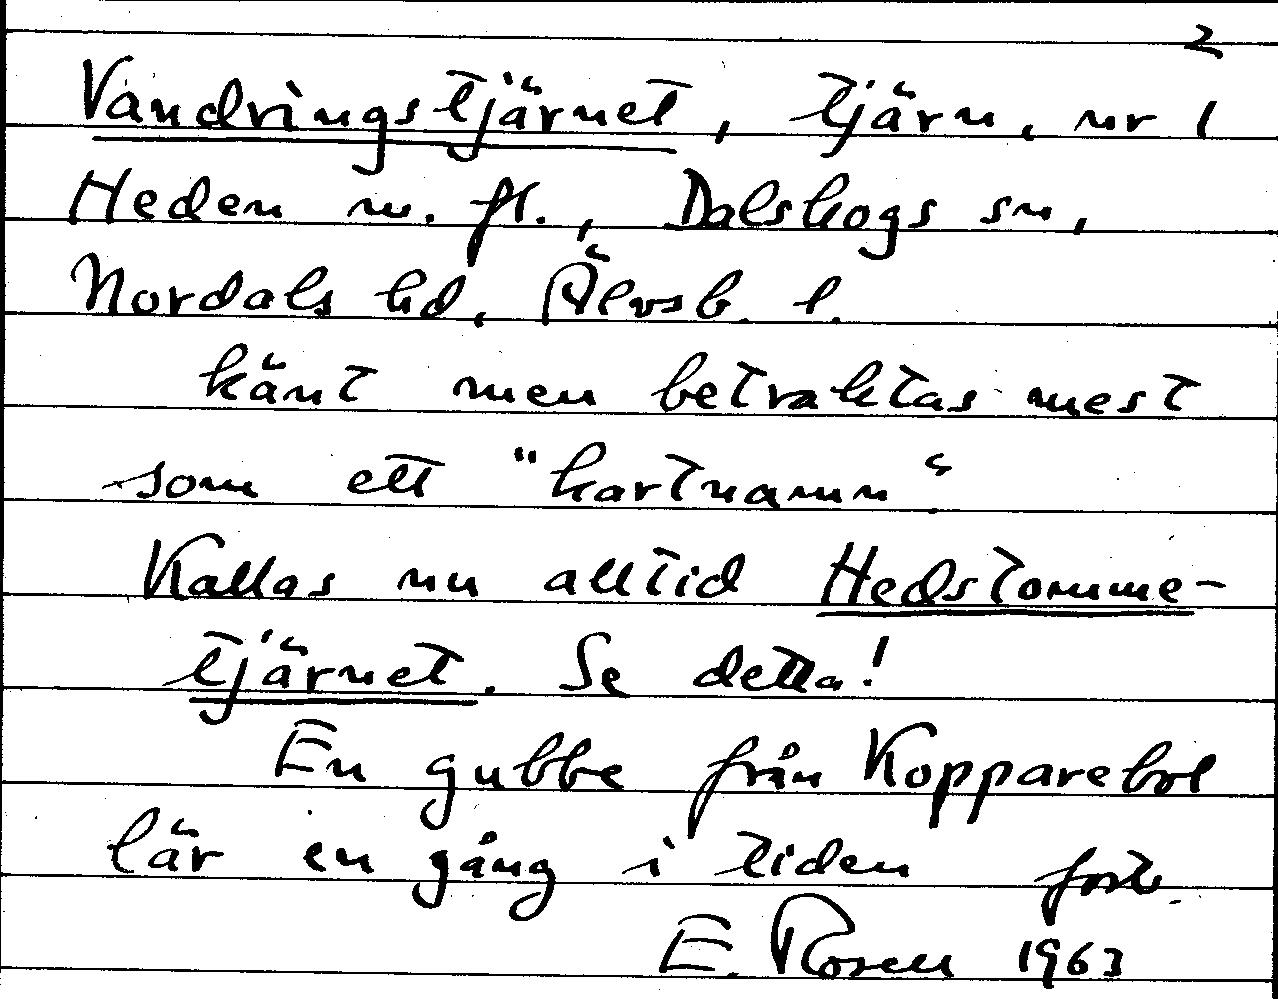 2
Vandringstjärnet, tjärn, nr 1
Heden m. fl., Dalskogs sn,
Nordals hd, Älvsb. l.
känt men betraktas mest
som ett "kartnamn".
Kallas nu alltid Hedstomme-
tjärnet. Se detta!
En gubbe från Kopparebol
lär en gång i tiden forts.
E. Rosell 1963